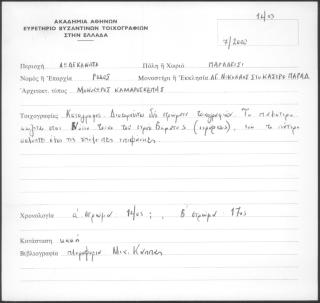 14ος
ΑΚΑΔΗΜΙΑ ΑΘΗΝΩΝ
ΕΥΡΕΤΗΡΙΟ ΒΥΖΑΝΤΙΝΩΝ ΤΟΙΧΟΓΡΑΦΙΩΝ
ΣΤΗΝ ΕΛΛΑΔΑ
7/2000
Περιοχή ΔΩΔΕΚΑΝΗΣΑ Πόλη ή Χωριό ΠΑΡΑΔΕΙΣΙ
Νομός ή Επαρχία ΡΟΔΟΣ Μοναστήρι ή Εκκλησία ΑΓ. ΝΙΚΟΛΑΟΣ ΣΤΟ ΚΑΣΤΡΟ ΠΑΡΑΔ.
Αρχιτεκτ. τύπος ΜΟΝΟΧΩΡΟΣ ΚΑΜΑΡΟΣΚΕΠΑΣΤΟΣ
Τοιχογραφίες Κατάγραφος. Διακρίνονται δύο στρώματα τοιχογραφιών. Το παλιότερο
σώζεται στον
καλύπτει όλες τις επιφάνειες.
Χρονολογία α' στρώμα 14ος ; , β' στρώμα 17ος
Κατάσταση κακή
Βιβλιογραφία πληροφορία Μιχ. Κάππας